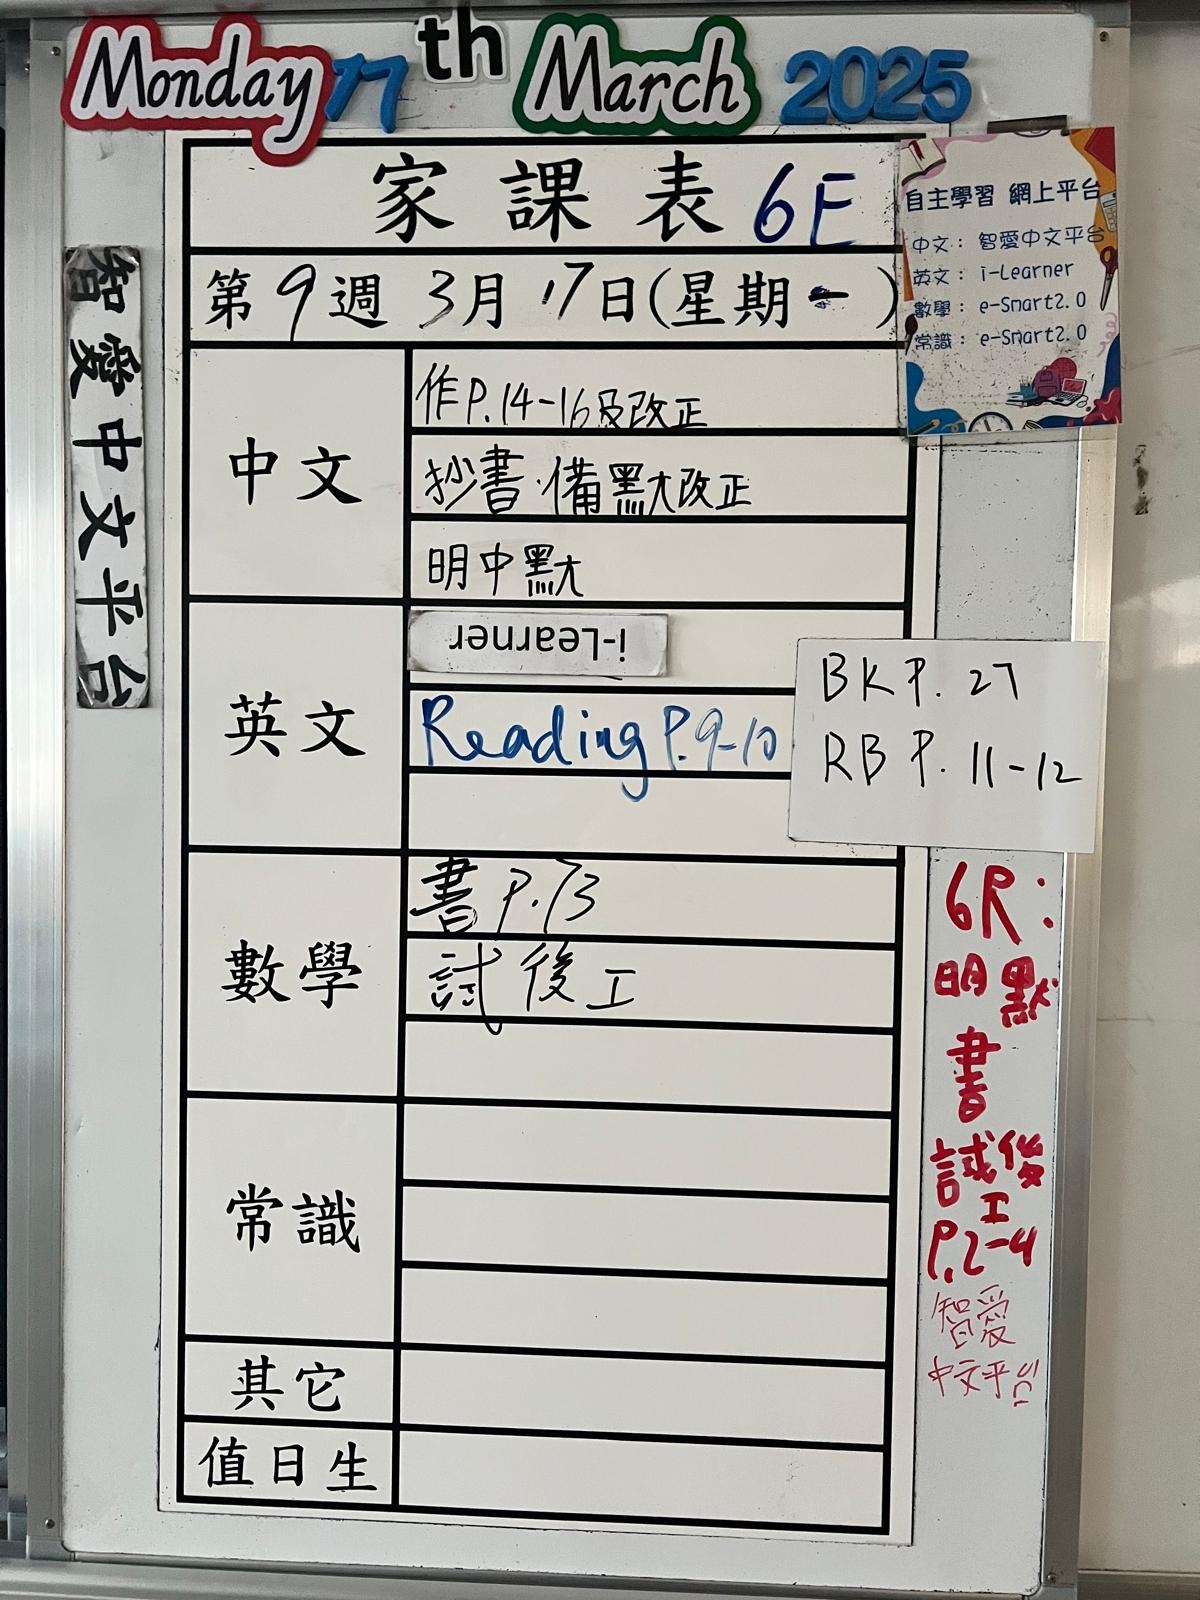 Monday 17th March 2025
家課表 6E
第9週 3月17日(星期一)
自主學習 網上平台
中文：智愛中文平台
英文：i-Learner
數學：e-Smart2.0
常識：e-Smart2.0
智愛中文平台
中文
作P.14-16及改正
抄書·備默改正
明中默
英文
i-Learner
Reading P.9-10
BK P. 27
RB P. 11-12
數學
書P.73
試後工
常識
其它
值日生
6R:
明默
書
試後
工
P.2-4
智愛
中文平台